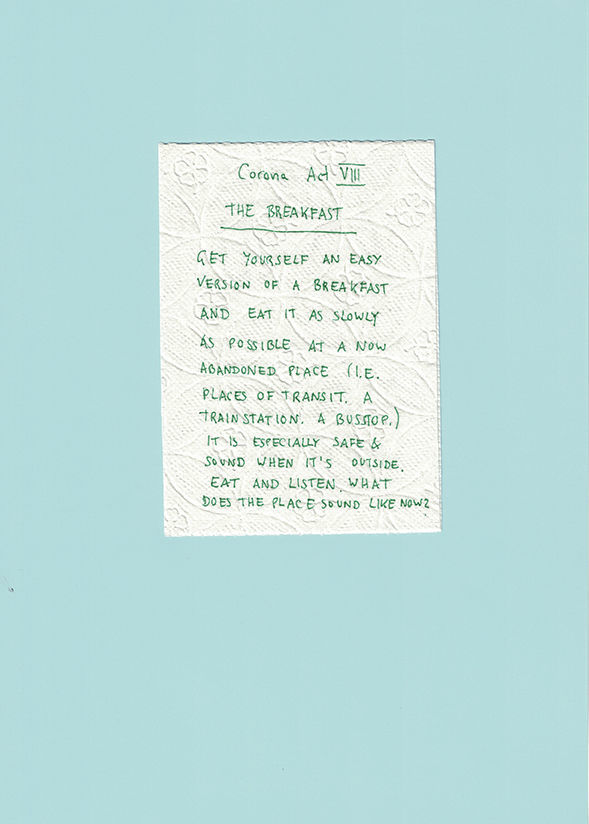 Corona Act VIII
THE BREAKFAST
GET YOURSELF AN EASY
VERSION OF A BREAKFAST
AND EAT IT AS SLOWLY
AS POSSIBLE AT A NOW
ABANDONED PLACE (I.E.
PLACES OF TRANSIT. A
TRAINSTATION. A BUSSTOP.)
IT IS ESPECIALLY SAFE &
SOUND WHEN IT'S OUTSIDE.
EAT AND LISTEN. WHAT
DOES THE PLACE SOUND LIKE NOW?